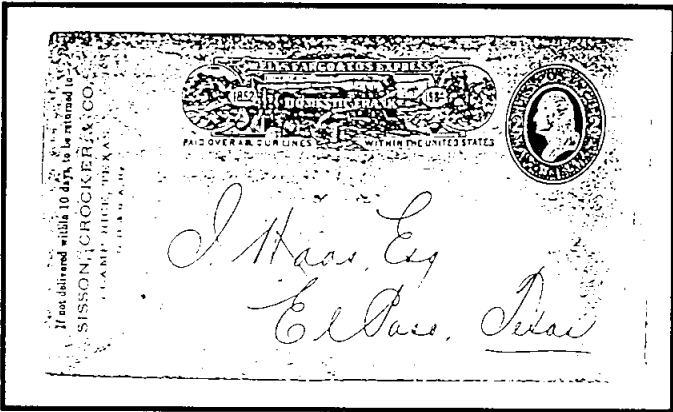 If not delivered within 10 days, to be returned to
SISSON, CROCKER & CO.,
CAMP RICE, TEXAS.
WELLS FARGO & CO'S EXPRESS
1852
DOMESTIC FRANK
1884
PAID OVER OUR LINES
WITHIN THE UNITED STATES
I. Haas, Esq
El Paso, Texas